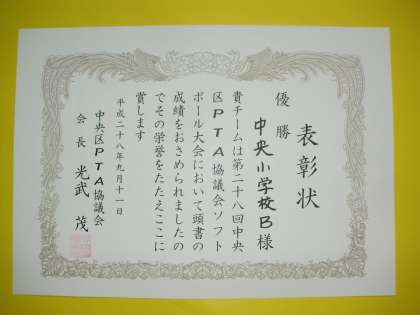 表彰状
優勝
中央小学校B様
貴チームは第二十八回中央
区PTA協議会ソフト
ボール大会において頭書の
成績をおさめられましたの
でその栄誉をたたえここに
賞します
平成二十八年九月十一日
中央区PTA協議会
会長 光武 茂